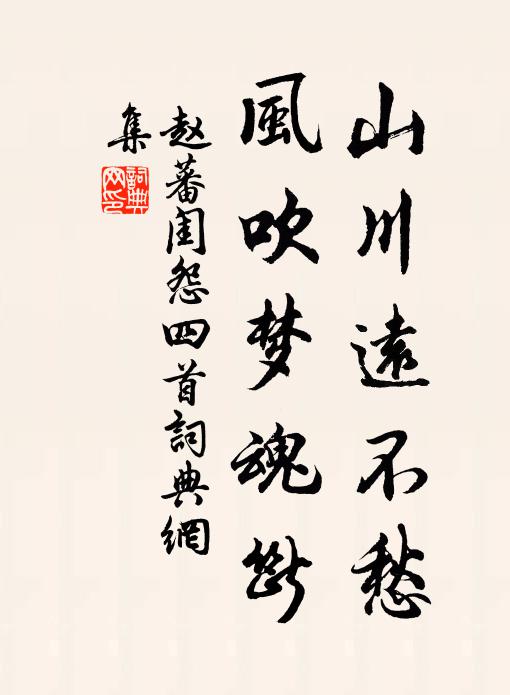 山川遠不愁
風吹梦魂斷
赵蕃闺怨四首詞典網
集
詞典
网印